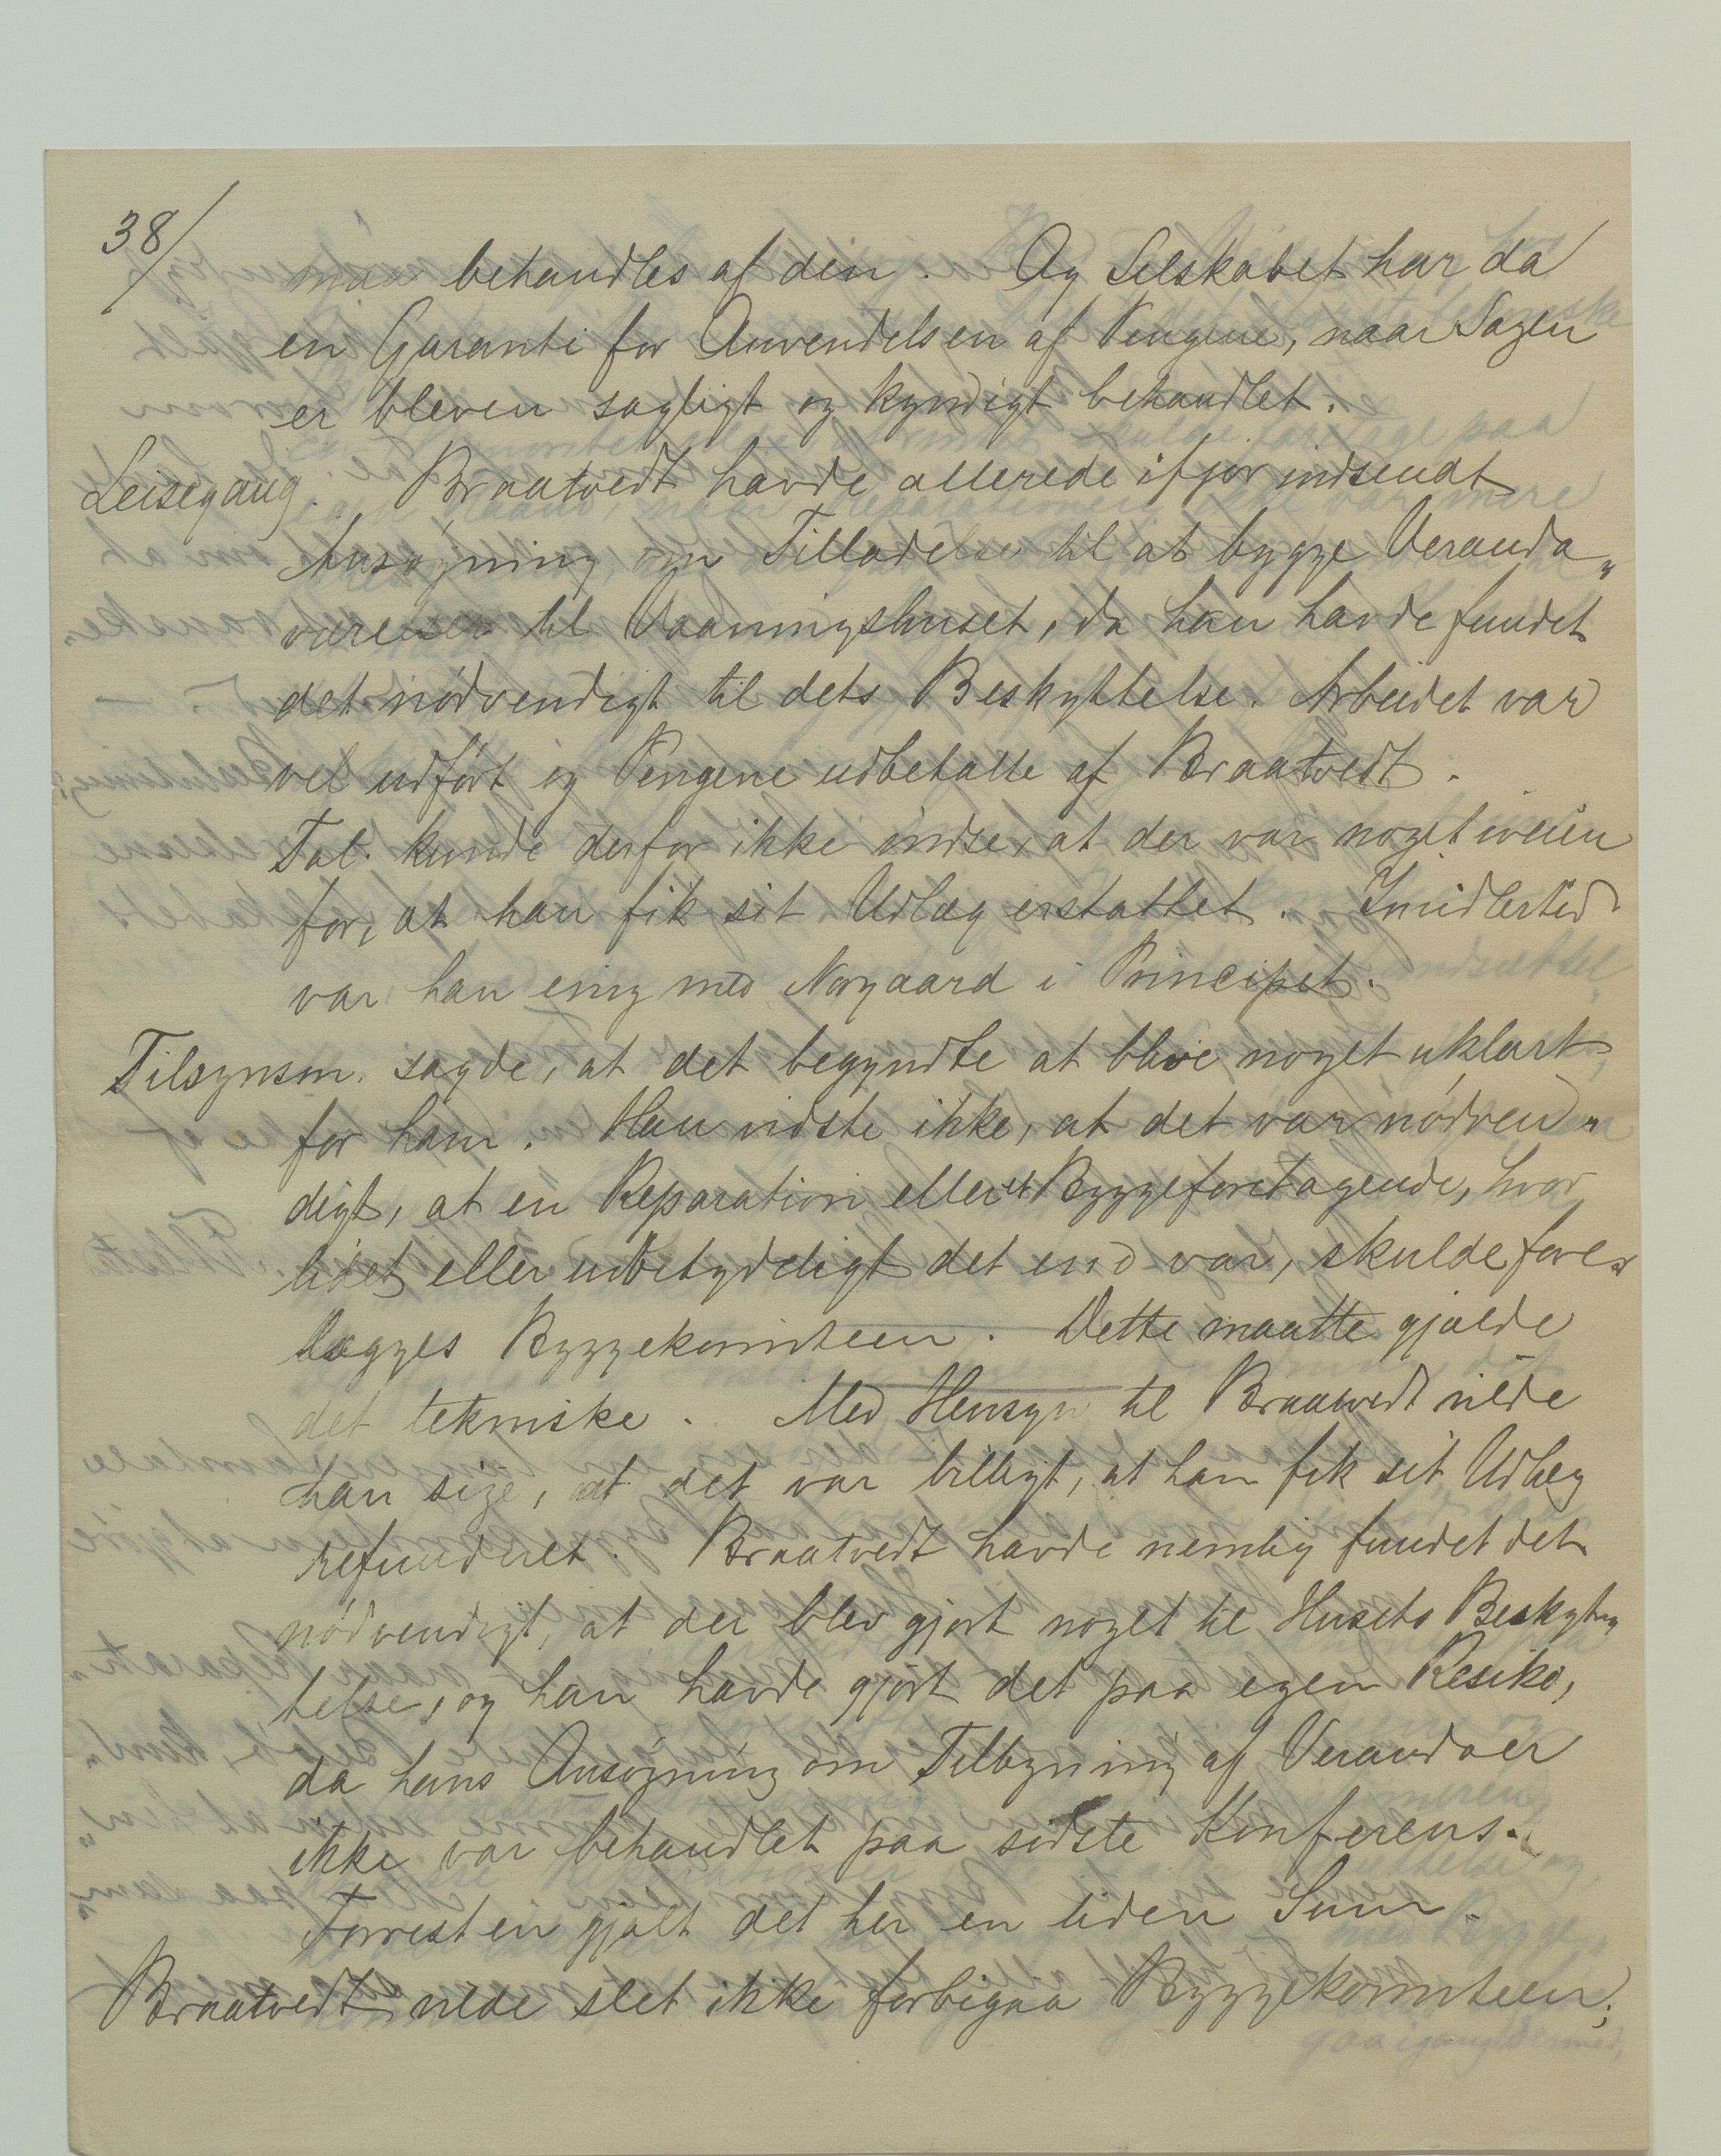 38/
maa behandles af den. Og Selskabet har da
en Garanti for Anvendelsen af Pengene, naar Sagen
er bleven sagligt og kyndigt behandlet.
Leisegang. Braatvedt havde allerede ifjor indsendt
Ansøgning om Tilladelse til at bygge Veranda„
værelser til Vaaningshuset, da han havde fundet
det nødvendigt til dets Beskyttelse. Arbeidet var
vel udført og Pengene udbetalte af Braatvedt.
Tal. kunde derfor ikke indse, at der var noget iveien
for, at han fik sit Udlæg erstattet. Imidlertid
var han enig med Norgaard i Principet.
Tilsynsm. sagde, at det begyndte at blive noget uklart
for ham. Han vidste ikke, at det var nødven„
digt, at en Reparation eller et Byggeforetagende, hvor
lidet eller ubetydeligt det end var, skulde fore„
lægges Byggekomiteen. Dette maatte gjælde
det tekniske. Med Hensyn til Braatvedt vilde
han sige, at det var billigt, at han fik sit Udlæg
refunderet. Braatvedt havde nemlig fundet det
nødvendigt, at der blev gjort noget til Husets Beskyt„
telse, og han havde gjort det paa egen Resiko,
da hans Ansøgning om Tilbygning af Verandaer
ikke var behandlet paa sidste Konferens.
Forresten gjaldt det her en liden Sum.
Braatvedt vilde slet ikke forbigaa Byggekomiteen;